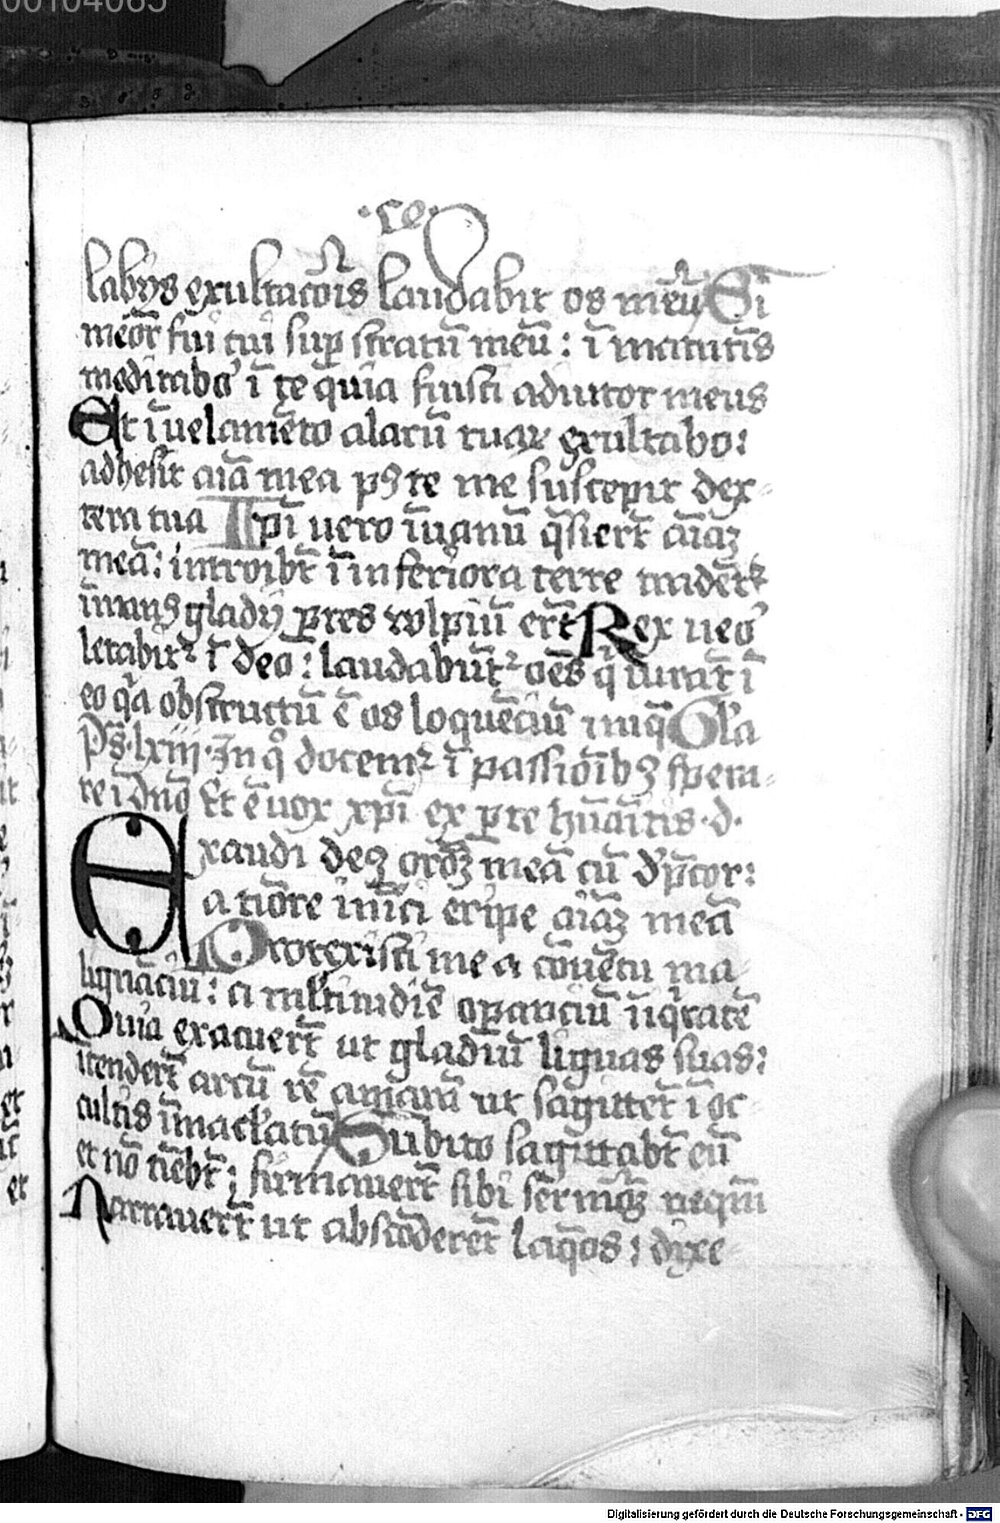 00104065
·ce·
labijs exultacõis laudabit os meũ Si
meor̃ fui tui sup̲ stratũ meũ : ĩ matutĩs
meditabor ĩ te quia fuisti adiutor meus
Et ĩ uelamẽto alarũ tuaꝝ exultabo :
adhesit aĩa mea pꝰ te me suscepit dex-
tera tua Ipĩ uero ĩ uanũ q̃siert̃ aĩaꝫ
meã : introibt̃ ĩ inferiora terre tradẽt
ĩ manꝰ gladij p̲tes vulpiũ ert̃ Rex uero
letabit̃ ĩ deo : laudabũt̃ oẽs q̃ iurãt ĩ
eo q̃a obstructũ ẽ os loquẽciũ iniq̃ Gl'a
Ps̃ · lxiii · In q̊ docemr̃ ĩ passiõibꝫ spera-
re ĩ dñõ Et ẽ uox xp̃i ex p̲te hũãitis · d ·
Exaudi deꝰ or̃õꝫ meã cũ dp̃cor :
a tiõre inĩci eripe aĩaꝫ meã
Protexisti me a cõuẽtu ma-
lignãciũ : a m̃ltitudiẽ op̲anciũ ĩiq̃tatẽ
Quia exacuert̃ ut gladiũ liguas suas :
ĩtendert̃ arcũ rẽ amarã ut sagittet̃ ĩ oc-
cultis ĩmacl'atũ Subito sagittabt̃ eũ
et nõ tĩebt̃ : firmauert̃ sibi sermõꝫ neq̃m
Narrauert̃ ut abscõderẽt laq̃os : dixe-
Digitalisierung gefördert durch die Deutsche Forschungsgemeinschaft - DFG